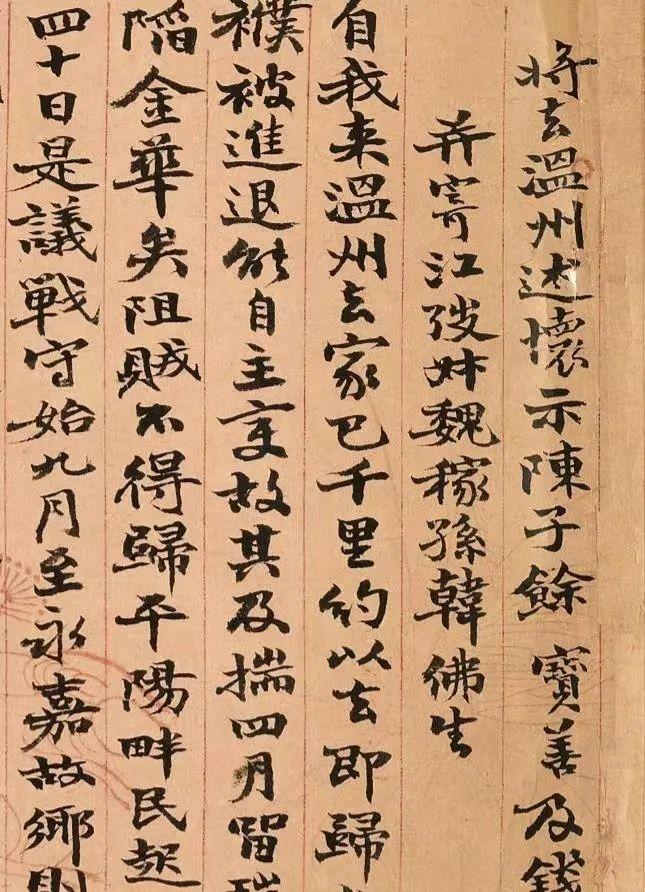 将去溫州述懷示陳子餘寶善及錢
并寄江弢叔魏稼孫韓佛生
自我来溫州去家已千里約以去即歸
襆被進退能自主变故其及揣四月留瑞
陷金華矣阻賊不得歸平陽畔民起
四十日是議戰守始九月至永嘉故鄉則